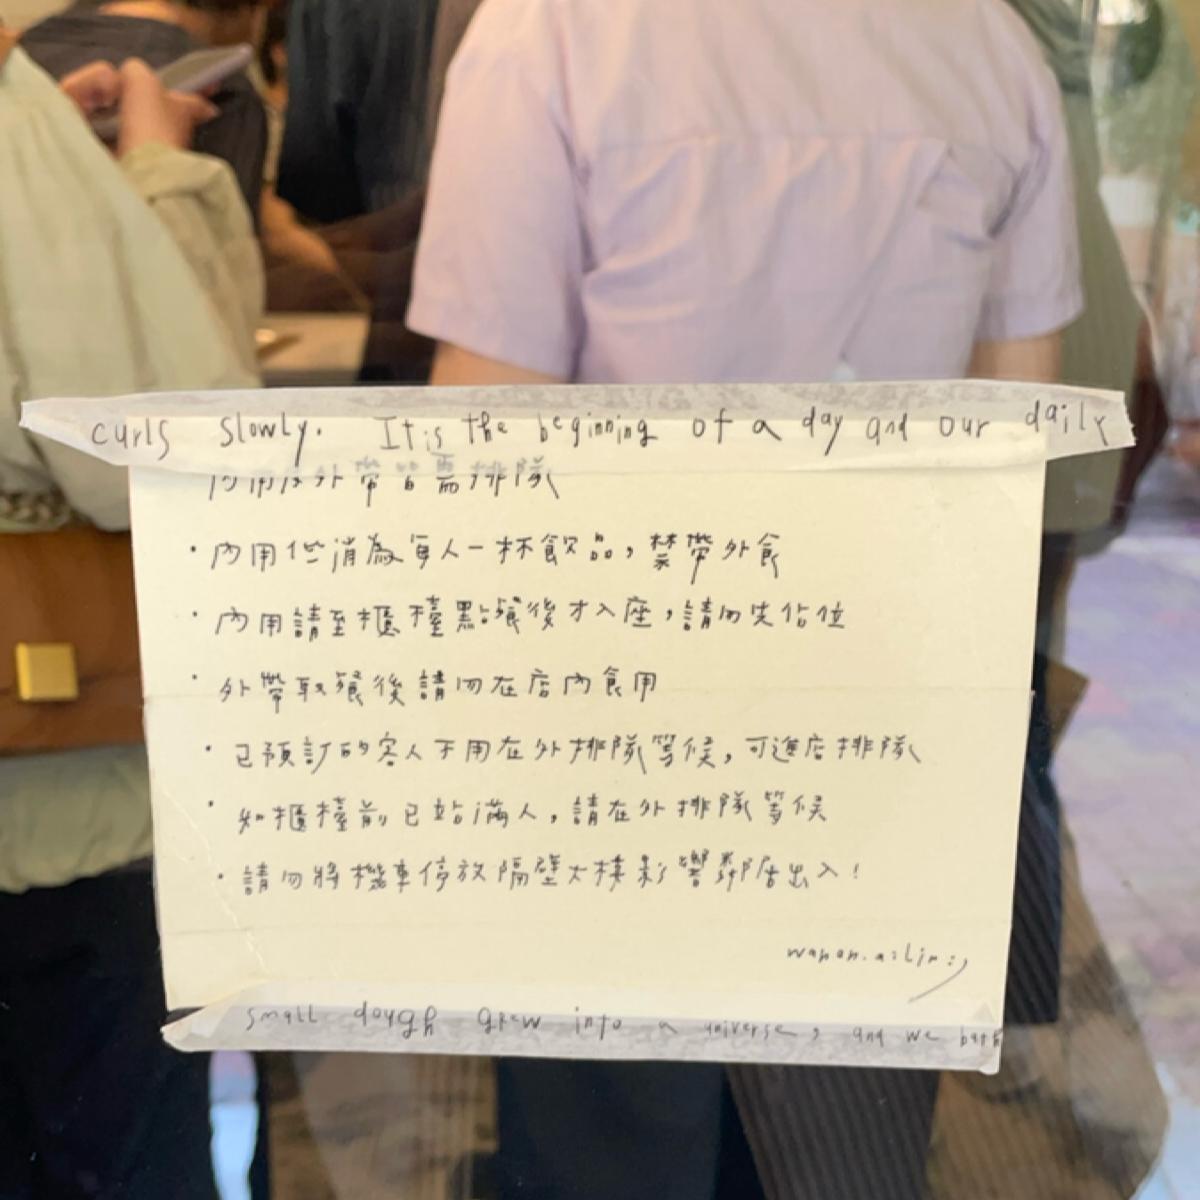 curls slowly. It is the beginning of a day and our daily
內用及外帶皆需排隊
・內用低消為每人一杯飲品，禁帶外食
・內用請至櫃檯點餐後才入座，請勿先佔位
・外帶取餐後請勿在店內食用
・已預訂的客人不用在外排隊等候，可進店排隊
・如櫃檯前已站滿人，請在外排隊等候
・請勿將機車停放隔壁大樓影響鄰居出入！
small dough grew into a universe, and we